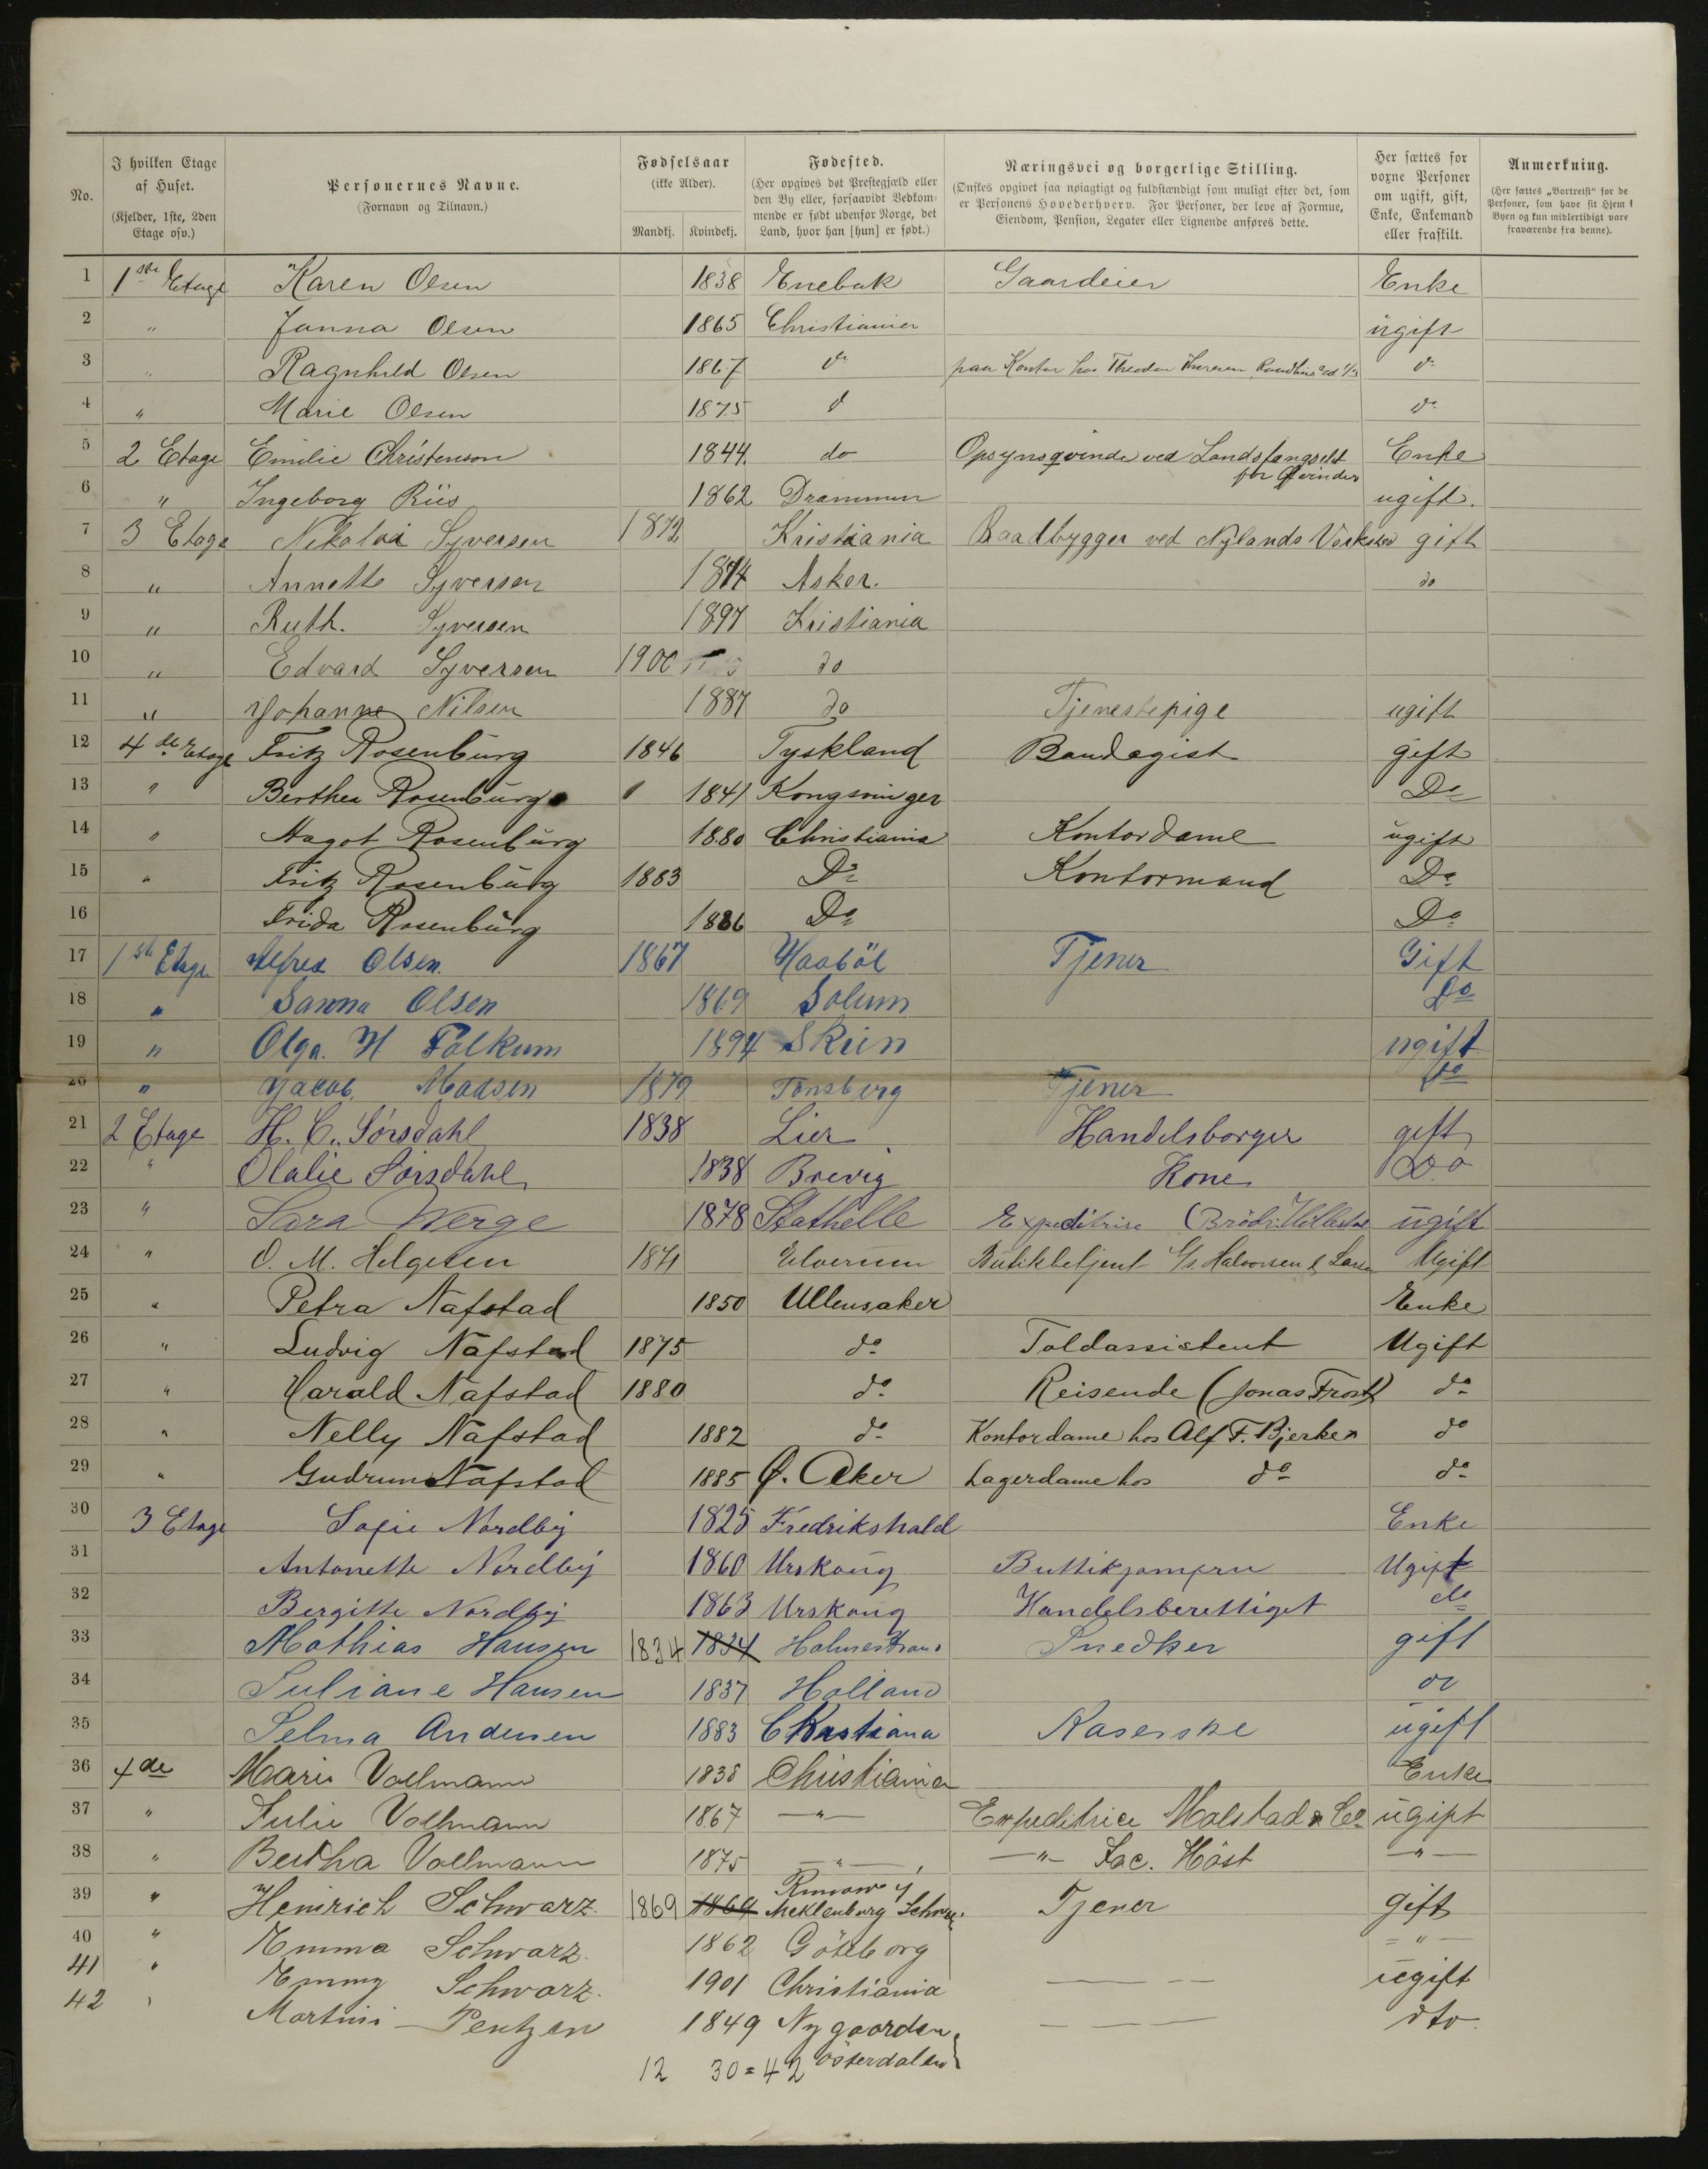 No.
I hvilken Etage af Huset. (Kjelder, 1ste, 2den Etage osv.)
Personernes Navne. (Fornavn og Tilnavn.)
Fødselsaar (ikke Alder). Mandkj. Kvindekj.
Fødested. (Her opgives det Prestegjæld eller den By eller, forsaavidt Vedkommende er født udenfor Norge, det Land, hvor han [hun] er født.)
Næringsvei og borgerlige Stilling. (Ønskes opgivet saa nøiagtigt og fuldstændigt som muligt efter det, som er Personens Hovederhverv. For Personer, der leve af Formue, Eiendom, Pension, Legater eller Lignende anføres dette.)
Her sættes for voxne Personer om ugift, gift, Enke, Enkemand eller fraskilt.
Anmerkning. (Her sættes „Bortreist" for de Personer, som have sit Hjem i Byen og kun midlertidigt vare fraværende fra denne).
1 1ste Etage Karen Olsen 1838 Enebak Gaardeier Enke
2 " Janna Olsen 1865 Christiania ugift
3 " Ragnhild Olsen 1867 do paa Kontor hos Theodor do
4 " Marie Olsen 1875 d do
5 2 Etage Emilie Christenson 1844. do Opsynsqvinde ved Landsfangselet for Qvinder Enke
6 " Ingeborg Riis 1862 Drammen ugift.
7 3 Etage Nikolai Syversen 1872 Kristiania Baadbygger ved Nylands Verksted gift
8 " Annette Syversen 1874 Asker. do
9 " Ruth. Syversen 1897 Kristiania
10 " Edvard Syversen 1900 do
11 " Johanne Nilsen 1887 do Tjenestepige ugift
12 4de Etage Fritz Rosenburg 1846 Tyskland Bandagist gift
13 " Berthea Rosenburg 1841 Kongsvinger Do
14 " Magot Rosenburg 1880 Christiania Kontordame ugift
15 " Fritz Rosenburg 1883 Do Kontormand Do
16 Frida Rosenburg 1886 Do Do
17 1ste Etage Alfred Olsen. 1867 Haaböl Tjener Gift
18 " Sanna Olsen 1869 Solum Do
19 " Olga. H Falkum 1894 Skien ugift
20 " Jacob. Madsen 1879 Tønsberg Tjener do
21 2 Etage H. C. Sørsdahl 1838 Lier Handelsborger gift
22 " Olalie Sørsdahl 1838 Brevig Kone Do
23 " Sara Werge 1878 Stathelle Expeditrise (Brödr. ugift
24 " O. M. Helgesen 1871 Elverum Butikbetjent Halvorsen & Ugift
25 " Petra Nafstad 1850 Ullensaker Enke
26 " Ludvig Nafstad 1875 do Toldassistent Ugift
27 " Harald Nafstad 1880 do Reisende (Jonas Frost) do
28 " Nelly Nafstad 1882 do Kontordame hos Alf F. Bjerke do
29 " Gudrun Nafstad 1885 Ø. Aker Lagerdame hos do do
30 3 Etage Sofie Nordby 1825 Fredrikshald Enke
31 Antonette Nordby 1860 Urskoug Buttikjomfru Ugift
32 Bergitte Nordby 1863 Urskoug Handelsberettiget do
33 Mathias Hansen 1834 1834 Holmestrand Snedker gift
34 Juliane Hansen 1837 Holland do
35 Selma Andersen 1883 Christiana Kaserske ugift
36 4de Marie Vollmann 1838 Christiania Enke
37 " Julie Vollmann 1867 — " — Expeditrice Molstad & Co ugift
38 " Bertha Vollmann 1875 — " — — " — Jac. Höst — " —
39 " Heinrich Schwarz. 1869 1869 Meklenburg Tjener gift
40 " Emma Schwarz. 1862 Göteborg — " —
41 " Emmy Schwarz. 1901 Christiania ugift
42 Martini Pentzen 1849 Nygaarden, Österdalen dto
12 30 = 42